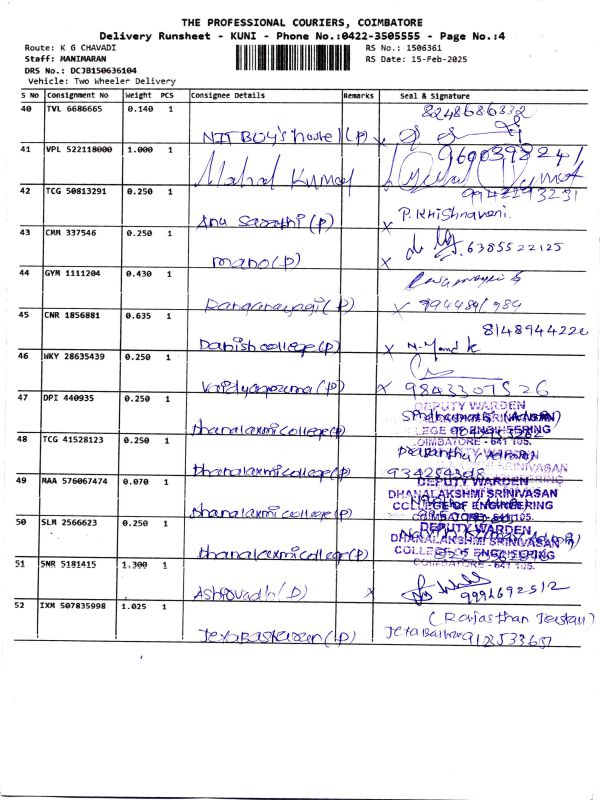 THE PROFESSIONAL COURIERS, COIMBATORE
Delivery Runsheet - KUNI - Phone No.:0422-3505555 - Page No.:4
Route: K G CHAVADI RS No.: 1506361
Staff: MANIMARAN RS Date: 15-Feb-2025
DRS No.: DCJB150636104
Vehicle: Two Wheeler Delivery
S No Consignment No Weight PCS Consignee Details Remarks Seal & Signature
40 TVL 6686665 0.140 1 8248686332
NIT BOY's hostel (P) x
41 VPL 522118000 1.000 1 9600398241
Mahal Kumar
42 TCG 50813291 0.250 1 9942293231
Anu Sarathi (P) x P. Krishnaveni.
43 CRM 337546 0.250 1
mano (P) x 6385522125
44 GYM 1111204 0.430 1
Ranganayagi (P) x
45 CNR 1856881 0.635 1 8148944220
Danish college (P) x
46 WKY 28635439 0.250 1
(P) x 9843307526
47 DPI 440935 0.250 1 DEPUTY WARDEN
Dhanalaxmi college (P) COLLEGE OF ENGINEERING
COIMBATORE - 641 105.
48 TCG 41528123 0.250 1
Dhanalaxmi college (P)
49 MAA 576067474 0.070 1 DEPUTY WARDEN
DHANALAKSHMI SRINIVASAN
Dhanalaxmi college (P) COLLEGE OF ENGINEERING
COIMBATORE - 641 105.
50 SLM 2566623 0.250 1 DEPUTY WARDEN
DHANALAKSHMI SRINIVASAN
Dhanalaxmi college (P) COLLEGE OF ENGINEERING
COIMBATORE - 641 105.
51 SNR 5181415 1.300 1
(P) x 9994692512
52 IXM 507835998 1.025 1 (Rajasthan
Jeta Baskaran (P) Jeta Baskar 912533651